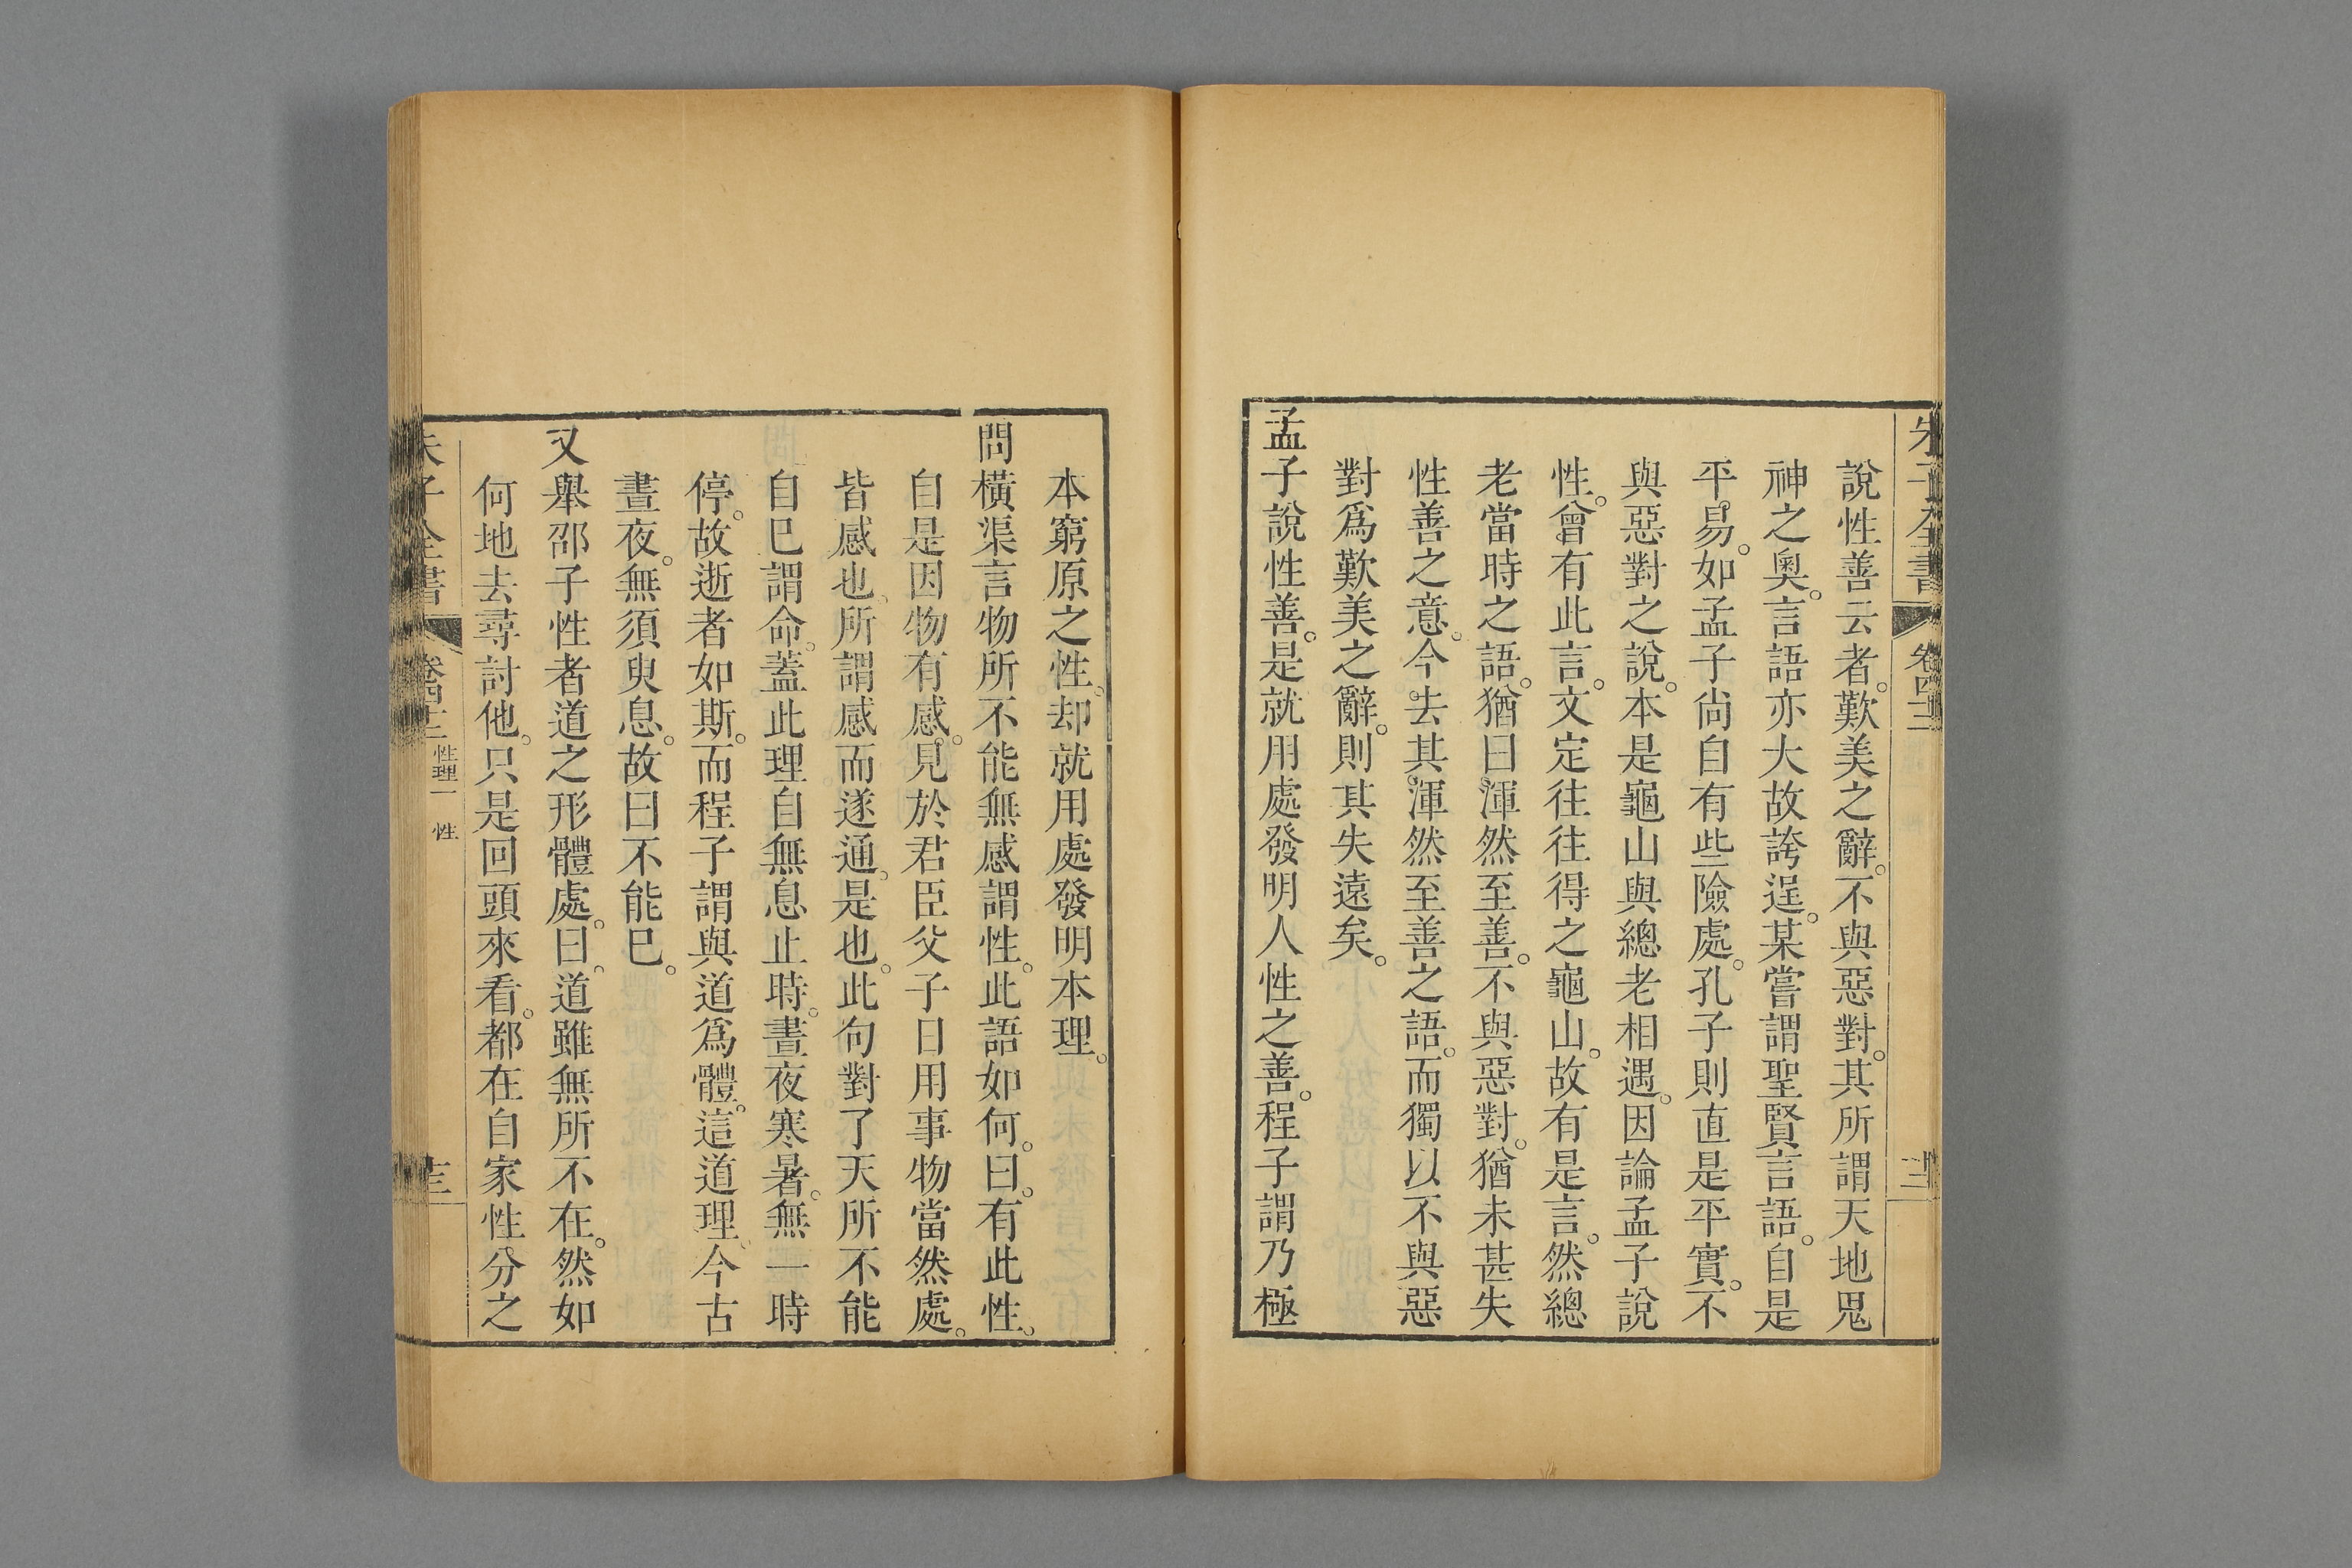 朱子全書 卷四十二
說性善云者。歎美之辭。不與惡對。其所謂天地鬼
神之奧。言語亦大故誇逞。某嘗謂聖賢言語。自是
平易。如孟子尙自有些險處。孔子則直是平實。不
與惡對之說。本是龜山與總老相遇。因論孟子說
性。曾有此言。文定往往得之龜山。故有是言。然總
老當時之語。猶曰渾然至善。不與惡對。猶未甚失
性善之意。今去其渾然至善之語。而獨以不與惡
對爲歎美之辭。則其失遠矣。
孟子說性善。是就用處發明人性之善。程子謂乃極
本窮原之性。却就用處發明本理。
問橫渠言物所不能無感謂性。此語如何。曰。有此性。
自是因物有感。見於君臣父子日用事物當然處。
皆感也。所謂感而遂通。是也。此句對了天所不能
自已謂命。蓋此理自無息止時。晝夜寒暑。無一時
停。故逝者如斯。而程子謂與道爲體。這道理。今古
晝夜。無須臾息。故曰不能已。
又舉邵子性者道之形體處。曰。道雖無所不在。然如
何地去尋討他。只是回頭來看。都在自家性分之
朱子全書 卷四十二 性理一 性 十三